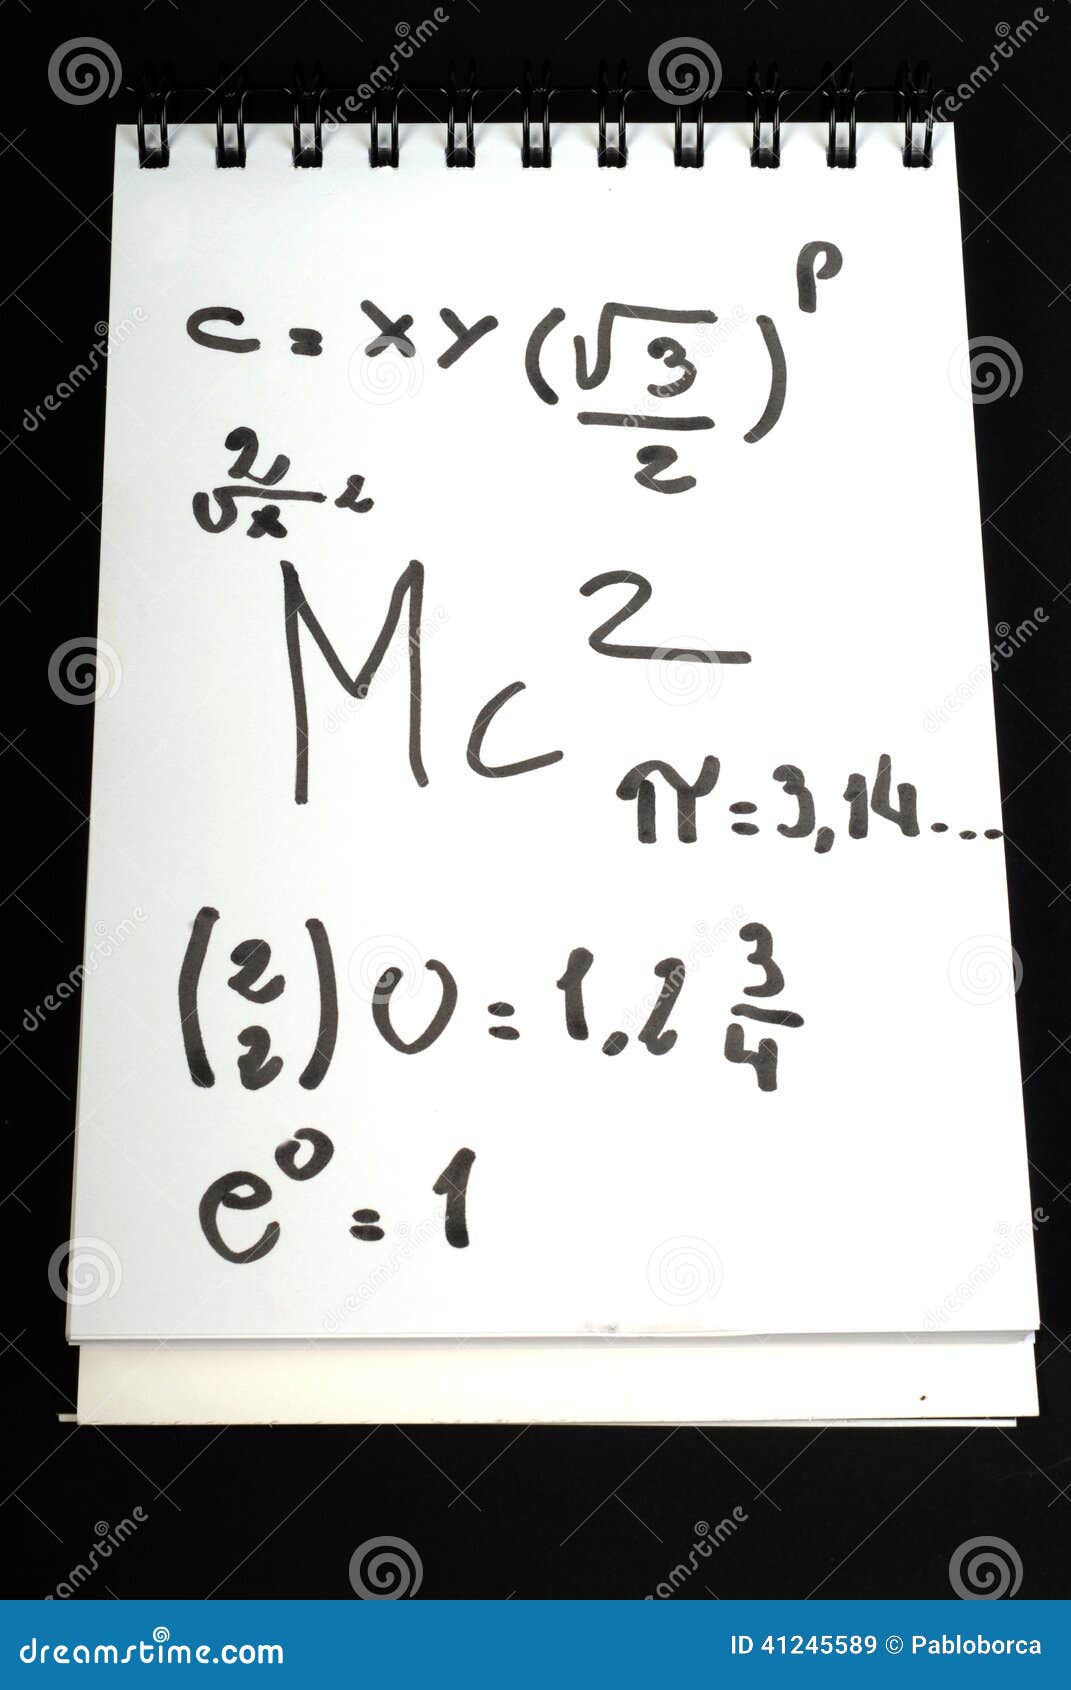 c = xy (√3/2)^p
2/√x 2
Mc²
π = 3,14...
(2 2) 0 = 1,2 3/4
e⁰ = 1
dreamstime.com
ID 41245589 © Pabloborca